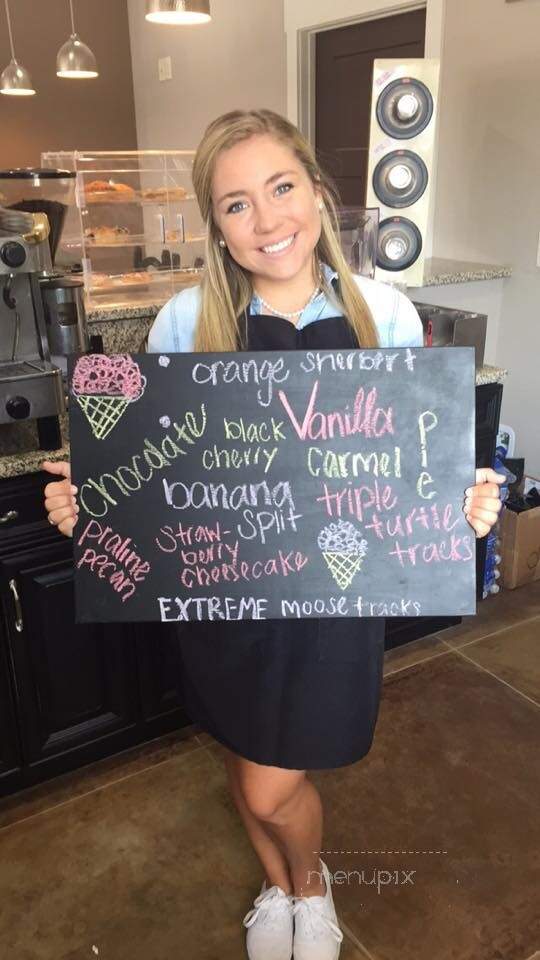 orange sherbert
chocolate
black
cherry
Vanilla
carmel
pie
banana
split
triple
turtle
tracks
praline
pecan
straw-
berry
cheesecake
EXTREME moose tracks
menupix